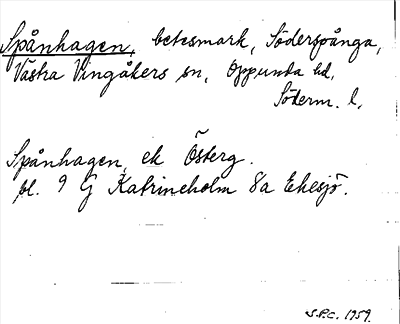 Spånhagen, betesmark, Söderspånga,
Västra Vingåkers sn, Oppunda hd,
Söderm. l.
Spånhagen, ek Österg.
bl. 9 G Katrineholm 8a Ekesjö.
S.P.C. 1959.